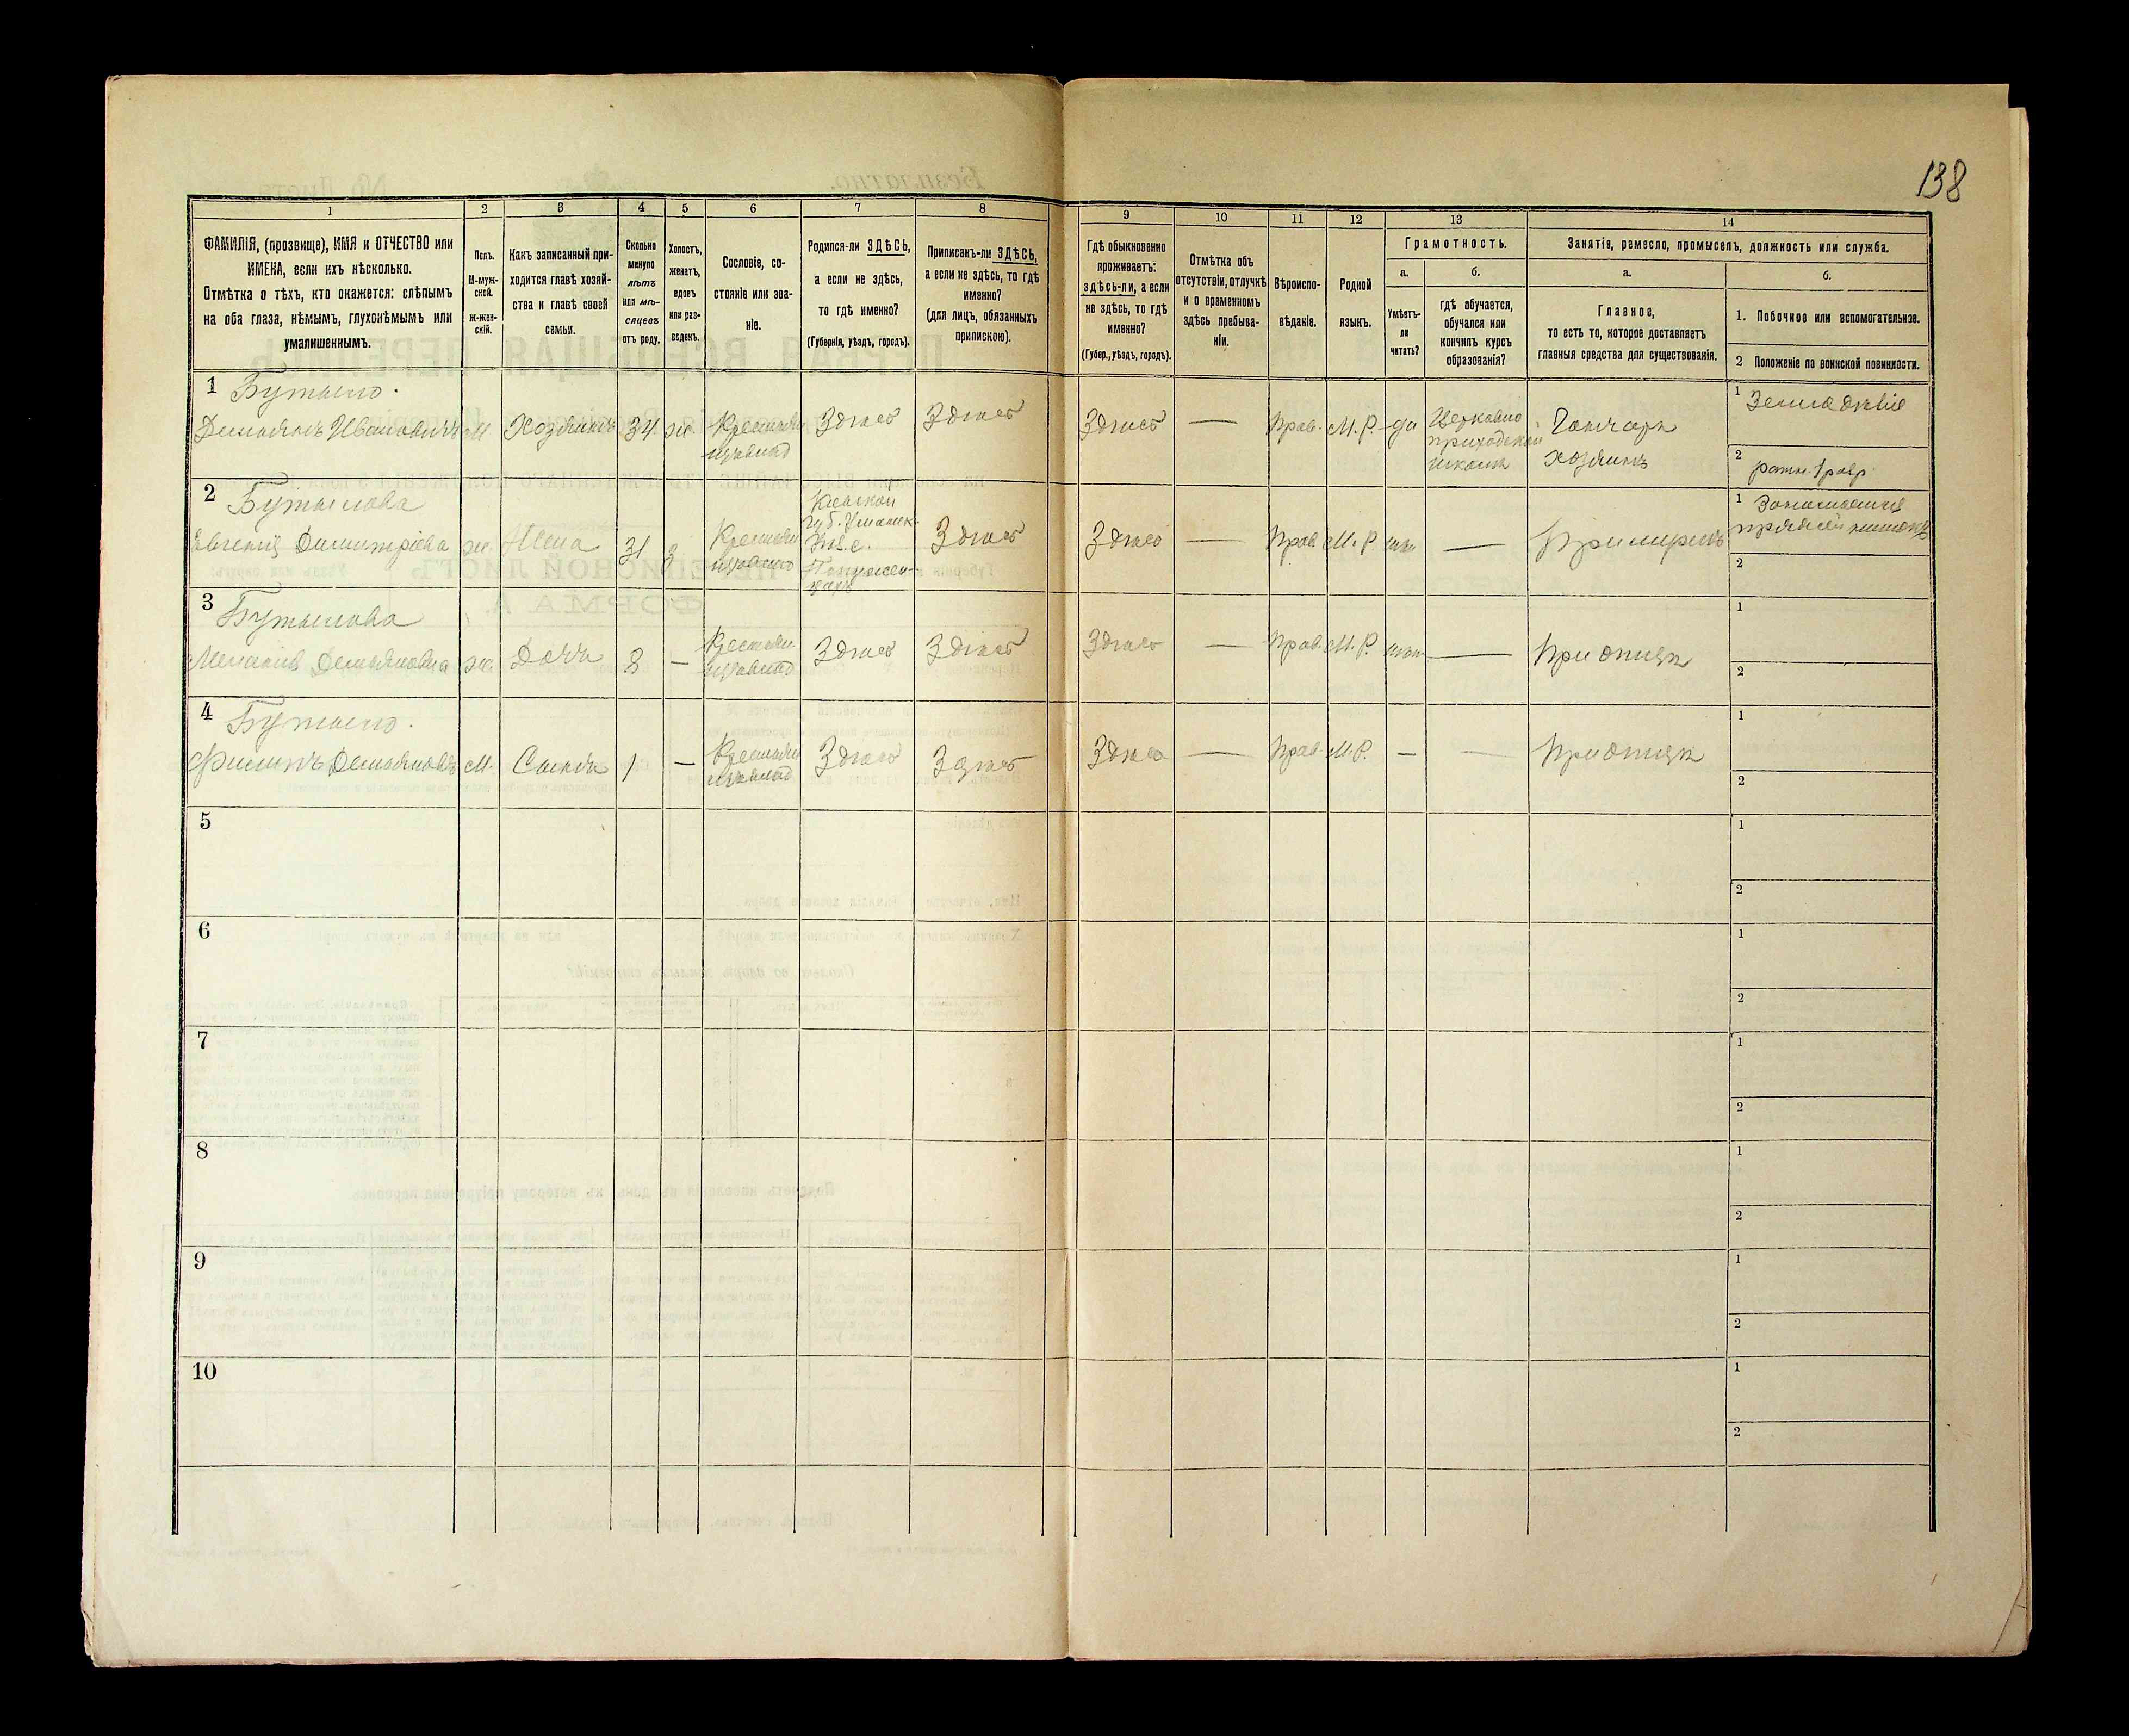 138
1
2
3
4
5
6
7
8
9
10
11
12
13
14
ФАМИЛІЯ, (прозвище), ИМЯ и ОТЧЕСТВО или
ИМЕНА, если ихъ нѣсколько.
Отмѣтка о тѣхъ, кто окажется: слѣпымъ
на оба глаза, нѣмымъ, глухонѣмымъ или
умалишеннымъ.
Полъ.
М-муж-
ской.
Ж-жен-
скій.
Какъ записанный при-
ходится главѣ хозяй-
ства и главѣ своей
семьи.
Сколько
минуло
лѣтъ
или мѣ-
сяцевъ
отъ роду.
Холостъ,
женатъ,
вдовъ
или раз-
веденъ.
Сословіе, со-
стояніе или зва-
ніе.
Родился-ли ЗДѢСЬ,
а если не здѣсь,
то гдѣ именно?
(Губернія, уѣздъ, городъ).
Приписанъ-ли ЗДѢСЬ,
а если не здѣсь, то гдѣ
именно?
(для лицъ, обязанныхъ
припискою).
Гдѣ обыкновенно
проживаетъ:
здѣсь-ли, а если
не здѣсь, то гдѣ
именно?
(Губер., уѣздъ, городъ).
Отмѣтка объ
отсутствіи, отлучкѣ
и о временномъ
здѣсь пребыва-
ніи.
Вѣроиспо-
вѣданіе.
Родной
языкъ.
Грамотность.
а.
Умѣетъ-
ли
читать?
б.
гдѣ обучается,
обучался или
кончилъ курсъ
образованія?
Занятія, ремесло, промыселъ, должность или служба.
а.
Главное,
то есть то, которое доставляетъ
главныя средства для существованія.
б.
1. Побочное или вспомогательное.
2 Положеніе по воинской повинности.
1 Бутыло.
Демьянъ Ивановичъ
М
Хозяинъ
34
ж.
Крестьян
Здѣсь
Здѣсь
Здѣсь
—
Прав.
М.Р.
да
Церковно
приходской
школа
Гончарь
хозяинъ
1 Земледѣліе
2 ратн. 1 разр.
2 Бутылова
Евгенія Димитріева
ж.
Жена
31
З
Крестьян
Кіевской
губ. Уманск.
Здѣсь
Здѣсь
—
Прав
М.Р
—
1 Занимается
пряжей нитокъ
2
3 Бутылова
Меланія Демьяновна
ж.
Дочь
8
—
Крестьян
Здѣсь
Здѣсь
Здѣсь
—
Прав.
М.Р.
—
При отцѣ
1
2
4 Бутыло.
Филипъ Демьяновъ
М.
Сынъ
1
—
Крестьян
Здѣсь
Здѣсь
Здѣсь
—
Прав.
М.Р.
—
—
При отцѣ
1
2
5
1
2
6
1
2
7
1
2
8
1
2
9
1
2
10
1
2